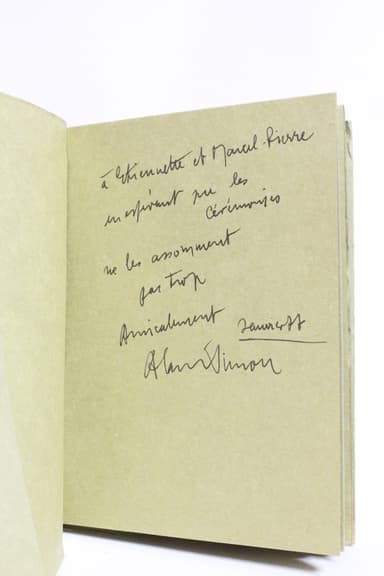 à Etiennette et Marcel-Pierre
en espérant que les
cérémonies
ne les assomment
pas trop
Amicalement Janvier 77
Alain Simon